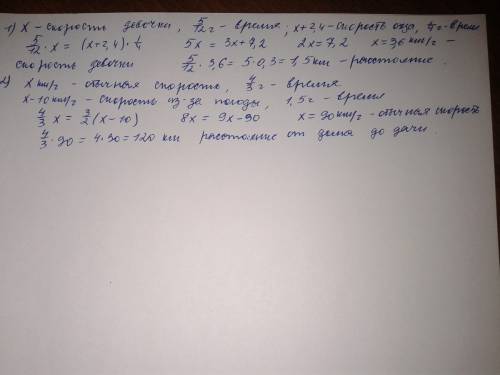 1) x – скорость девочки, 5/12 г – время; x+2,4 – скорость отца, 1/4 г – время
5/12 · x = (x+2,4) · 1/4   5x = 3x+7,2   2x = 7,2   x = 3,6 км/г –
скорость девочки   5/12 · 3,6 = 5 · 0,3 = 1,5 км – расстояние.
2) x км/г – обычная скорость, 4/3 г – время
x–10 км/г – скорость из-за погоды, 1,5 г – время
4/3 x = 3/2 (x–10)   8x = 9x–90   x = 90 км/г – обычная скорость
4/3 · 90 = 4 · 30 = 120 км расстояние от дома до дачи.